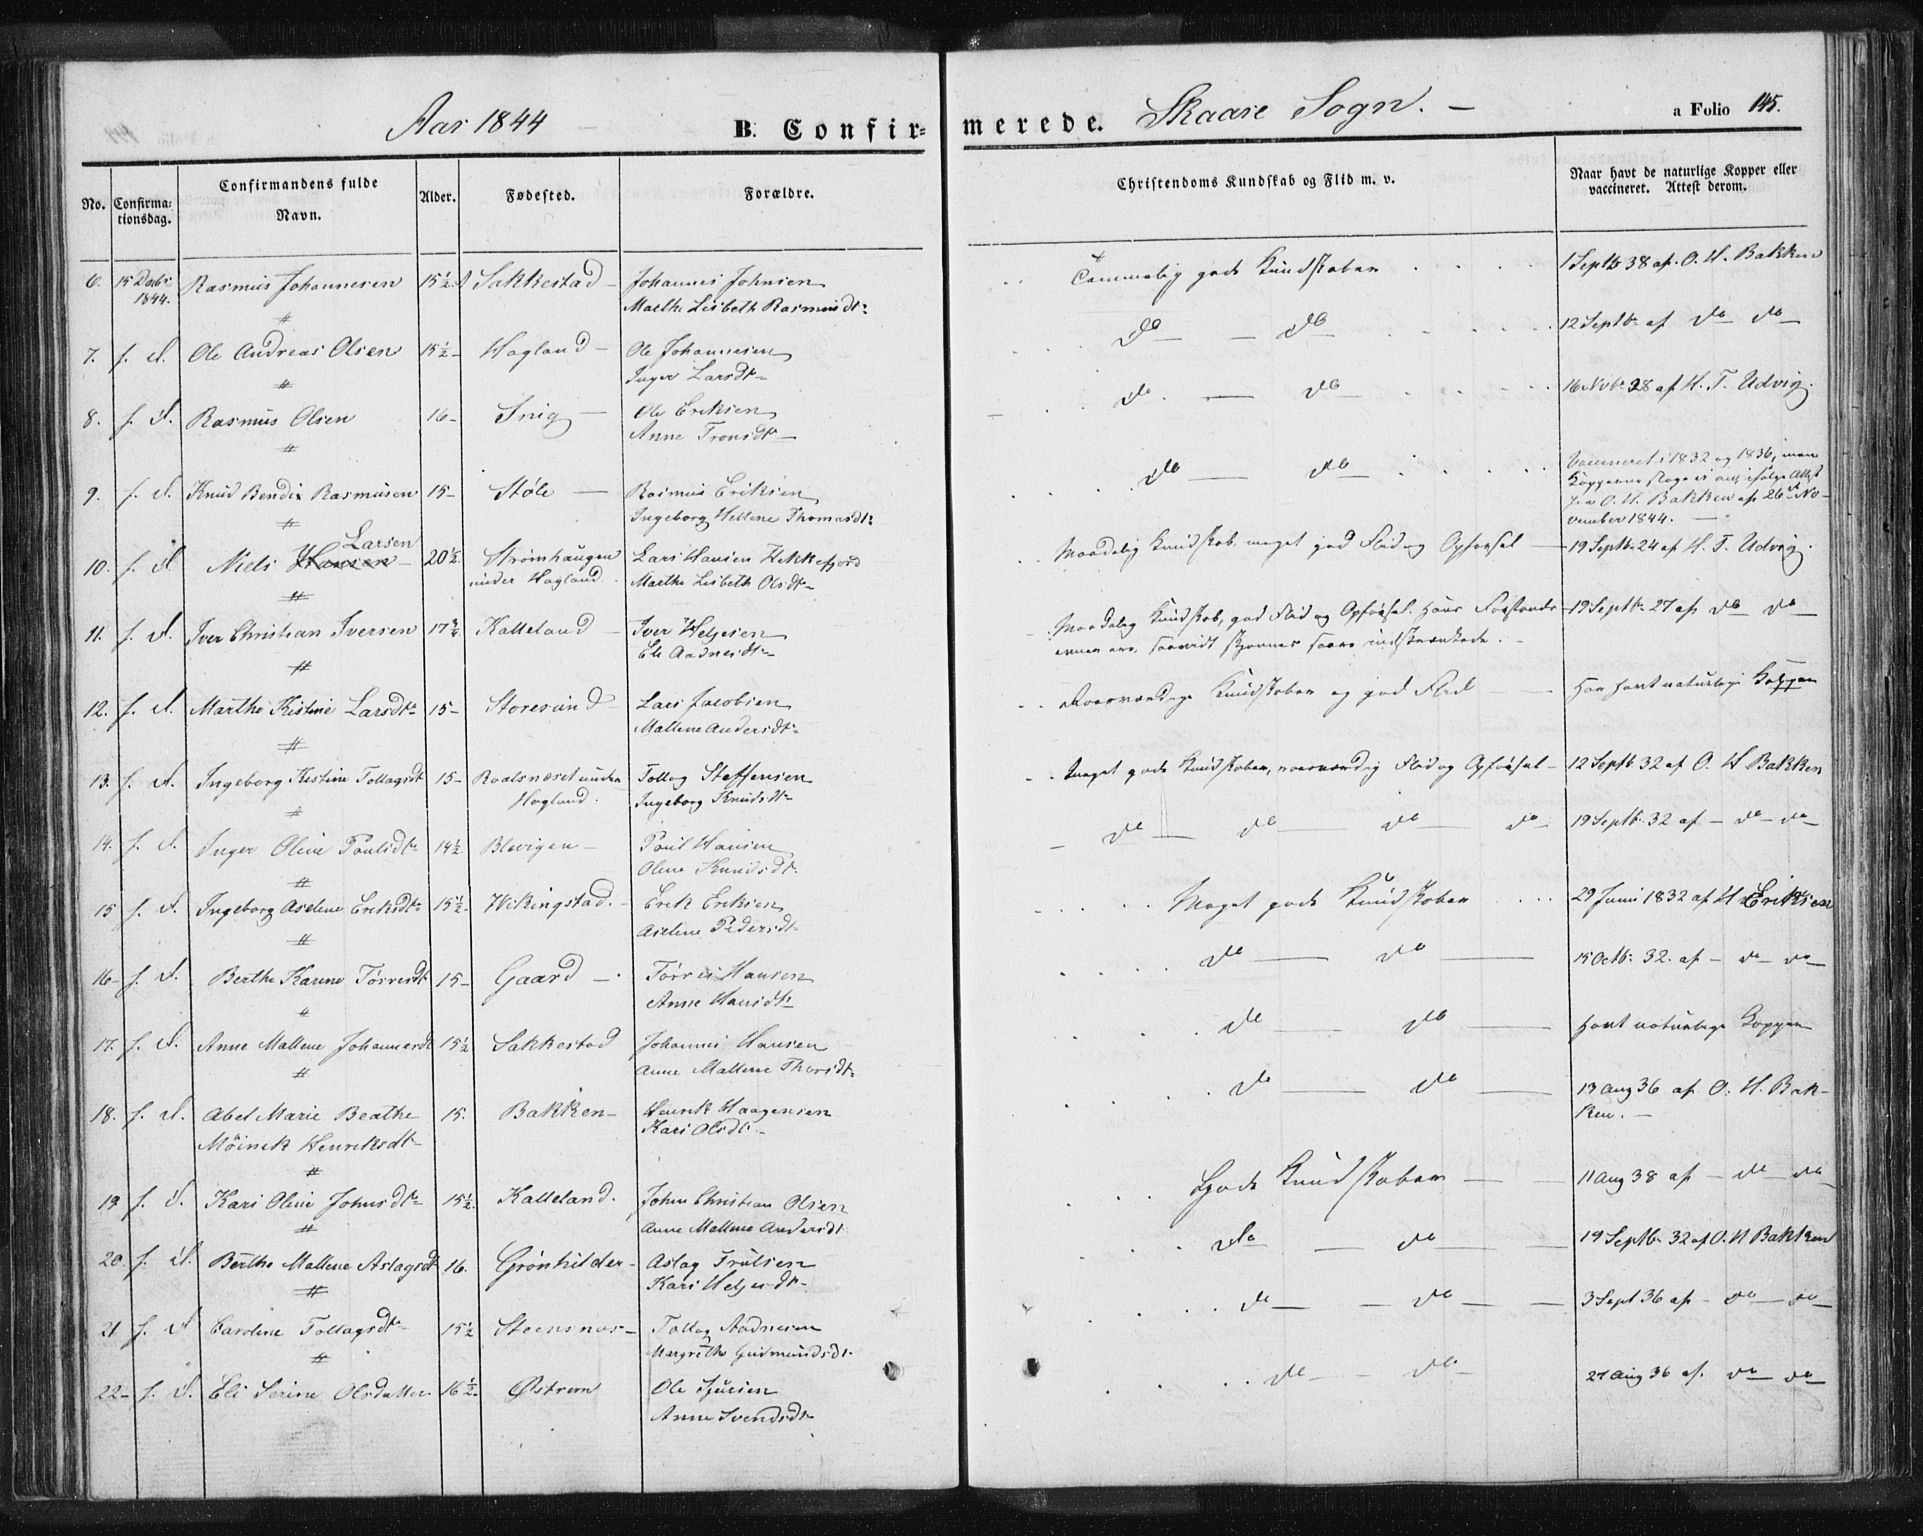 Aar 1844
B. Confirmerede.
Skaare Sogn.
a Folio 145.
No.
Confirmationsdag.
Confirmandens fulde Navn.
Alder.
Fødested.
Forældre.
Christendoms Kundskab og Flid m. v.
Naar havt de naturlige Kopper eller vaccineret. Attest derom.
6. 15 Decbr 1844. Rasmus Johannesen 15½ Sakkestad Johannes Johnsen Temmelig gode Kundskaber 1 Septb 38 af O. H. Bakken
Marthe Lisbeth Rasmusdtr
7. s. d. Ole Andreas Olsen 15½ Hagland Ole Johannesen do do 12 Septbr af do do
Inger Larsdtr
8. s. d. Rasmus Olsen 16 Snig Ole Eriksen do do 16 Novbr 28 af H. T. Udvig.
Anne Tronsdtr
9. s. d. Knud Bendix Rasmusen 15 Støle Rasmus Eriksen do do Vaccineret i 1832 og 1836, men
Ingeborg Hellene Thomasdtr Kopperne sloge ei an, ifølge Attest
O. H. Bakken af 26de November 1844.
10. s. d. Niels Hansen Larsen 20½ Strømhaugen under Hagland Lars Hansen Vikkefjord Maadelig Kundskab, meget god Flid og Opførsel 19 Septbr 24 af H. T. Udvig.
Marthe Lisbeth Olsdtr
11. s. d. Iver Christian Iversen 17¾ Kalleland Iver Heljesen Maadelig Kundskab, god Flid og Opførsel. Hans Forstands- 19 Septbr 27 af do do
Eli Aadnesdtr evner ere, saavidt skjønnes, saare indskrænkede.
12. s. d. Marthe Kistine Larsdtr 15 Storesund Lars Jacobsen Nødvendige Kundskaber og god Flid Har havt naturlige Kopper
Mallene Andersdtr
13. s. d. Ingeborg Kistine Tollagsdt 15 Roalsnæset under Hagland. Tollag Steffensen Meget gode Kundskaber, Flid og Opførsel 12 Septb. 32 af O. H Bakken
Ingeborg Knudsdtr
14. s. d. Inger Oline Poulsdtr 14½ Blevigen Poul Hansen do do do do 19 Septb. 32 af do do
Oline Knudsdtr
15 s. d. Ingeborg Aselene Eriksdtr 15½ Vikingstad. Erik Eriksen Meget gode Kundskaber 29 Juni 1832 af H Eriksen
Aselene Pedersdtr
16 s. d. Berthe Karine Tørresdt 15 Gaard Tørres Hansen do do 15 Octb. 32. af do do
Anne Hansdtr
17. s. d. Anne Mallene Johannesdt 15½ Sakkestad Johannes Hansen do do havt naturlige Kopper
Anne Mallene Thorsdtr
18. s. d. Abel Marie Beathe Møinek Henriksdtr 15. Bakken Henrik Haagensen do do 13 Aug 36 af O. H. Bakken.
Kari Olsdtr
19 s. d. Kari Oline Johnsdtr 15½ Kalleland. John Christian Olsen Gode Kundskaber 11 Aug 38 af do do
Anne Mallene Andersdt
20. s. d. Berthe Mallene Aslagsdt 16. Grønhilder Aslag Trulsen do do 19 Septb. 32 af O. H Bakken
Kari Heljesdtr
21 s. d. Caroline Tollagsdtr 15½ Steensnæs Tollag Aadnesen do do 3 Sept 36 af do do
Margrethe Gudmundsdt.
22 s. d. Eli Serine Olsdatter 16½ Østrem Ole Sjursen do do 27 Aug 36 af. do do
Anne Svendsdtr